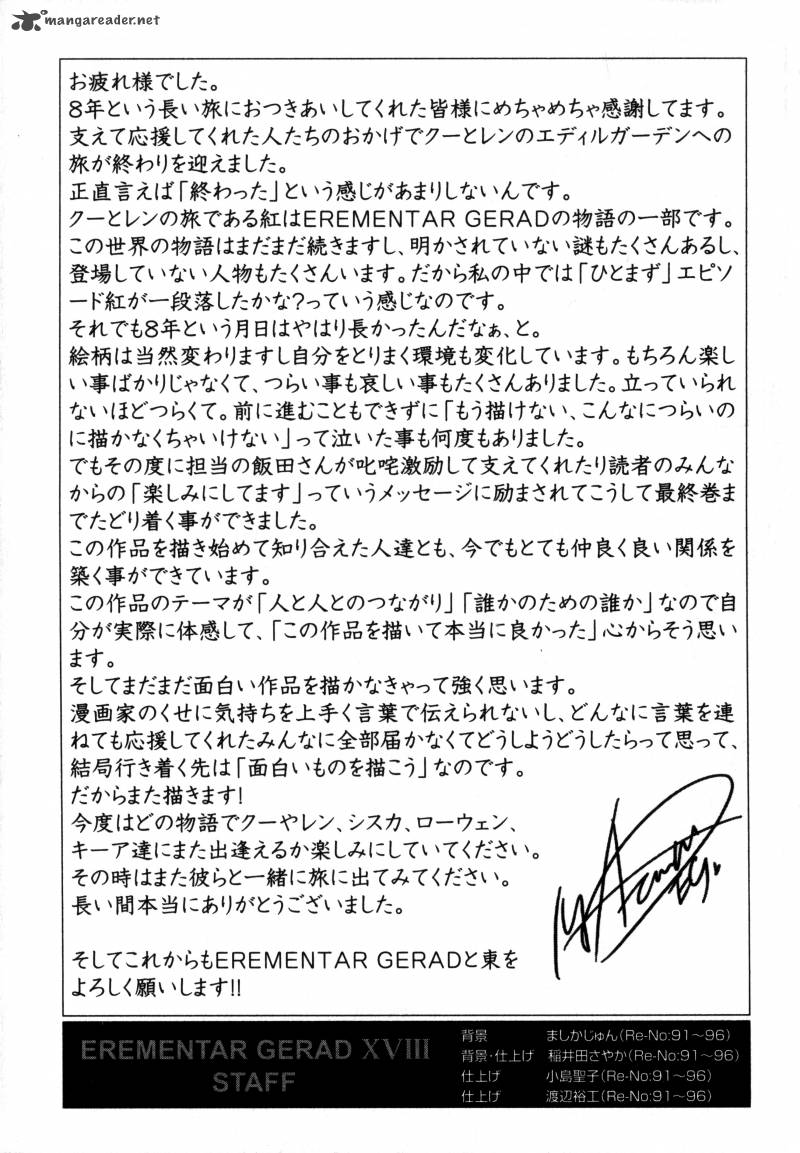 mangareader.net
お疲れ様でした。
8年という長い旅におつきあいしてくれた皆様にめちゃめちゃ感謝してます。
支えて応援してくれた人たちのおかげでクーとレンのエディルガーデンへの
旅が終わりを迎えました。
正直言えば「終わった」という感じがあまりしないんです。
クーとレンの旅である紅はEREMENTAR GERADの物語の一部です。
この世界の物語はまだまだ続きますし、明かされていない謎もたくさんあるし、
登場していない人物もたくさんいます。だから私の中では「ひとまず」エピソ
ード紅が一段落したかな?っていう感じなのです。
それでも8年という月日はやはり長かったんだなぁ、と。
絵柄は当然変わりますし自分をとりまく環境も変化しています。もちろん楽し
い事ばかりじゃなくて、つらい事も哀しい事もたくさんありました。立っていられ
ないほどつらくて。前に進むこともできずに「もう描けない、こんなにつらいの
に描かなくちゃいけない」って泣いた事も何度もありました。
でもその度に担当の飯田さんが叱咤激励して支えてくれたり読者のみんな
からの「楽しみにしてます」っていうメッセージに励まされてこうして最終巻ま
でたどり着く事ができました。
この作品を描き始めて知り合えた人達とも、今でもとても仲良く良い関係を
築く事ができています。
この作品のテーマが「人と人とのつながり」「誰かのための誰か」なので自
分が実際に体感して、「この作品を描いて本当に良かった」心からそう思い
ます。
そしてまだまだ面白い作品を描かなきゃって強く思います。
漫画家のくせに気持ちを上手く言葉で伝えられないし、どんなに言葉を連
ねても応援してくれたみんなに全部届かなくてどうしようどうしたらって思って、
結局行き着く先は「面白いものを描こう」なのです。
だからまた描きます!
今度はどの物語でクーやレン、シスカ、ローウェン、
キーア達にまた出逢えるか楽しみにしていてください。
その時はまた彼らと一緒に旅に出てみてください。
長い間本当にありがとうございました。
そしてこれからもEREMENTAR GERADと東を
よろしく願いします!!
EREMENTAR GERAD XVIII
STAFF
背景 ましかじゅん(Re-No:91〜96)
背景・仕上げ 稲井田さやか(Re-No:91〜96)
仕上げ 小島聖子(Re-No:91〜96)
仕上げ 渡辺裕工(Re-No:91〜96)